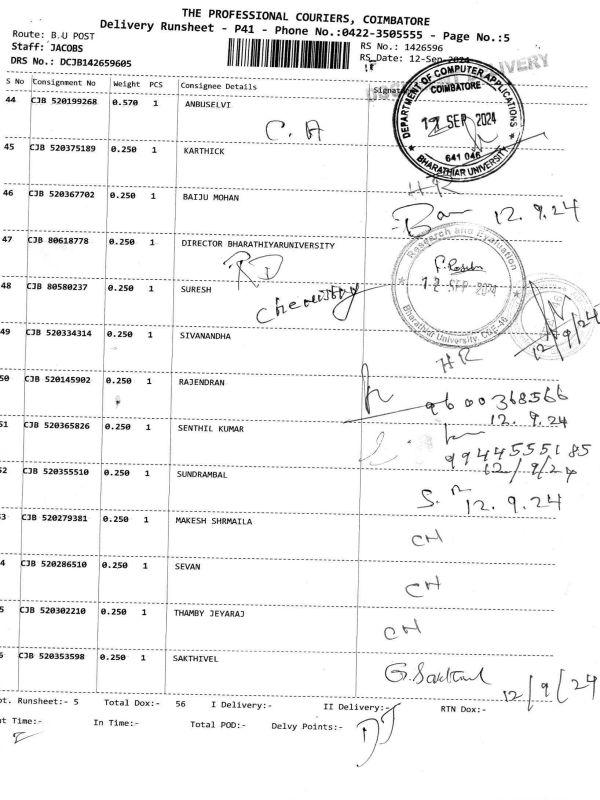 THE PROFESSIONAL COURIERS, COIMBATORE
Delivery Runsheet - P41 - Phone No.:0422-3505555 - Page No.:5
Route: B.U POST
RS No.: 1426596
Staff: JACOBS
RS Date: 12-Sep-2024
DRS No.: DCJB142659605
DELIVERY
S No Consignment No Weight PCS Consignee Details Signat
DEPARTMENT OF COMPUTER APPLICATIONS
COIMBATORE
12 SEP 2024
641 046
BHARATHIAR UNIVERSITY
44 CJB 520199268 0.570 1 ANBUSELVI
C. A
45 CJB 520375189 0.250 1 KARTHICK
HR
46 CJB 520367702 0.250 1 BAIJU MOHAN
12.9.24
47 CJB 80618778 0.250 1 DIRECTOR BHARATHIYARUNIVERSITY
RD
Research and Evaluation
12 SEP 2024
Bharathiar University, CBE-46
48 CJB 80580237 0.250 1 SURESH
chemistry
12/9/24
49 CJB 520334314 0.250 1 SIVANANDHA
HR
50 CJB 520145902 0.250 1 RAJENDRAN
9600368566
12.9.24
51 CJB 520365826 0.250 1 SENTHIL KUMAR
9944555185
12/9/24
52 CJB 520355510 0.250 1 SUNDRAMBAL
12.9.24
3 CJB 520279381 0.250 1 MAKESH SHRMAILA
CH
4 CJB 520286510 0.250 1 SEVAN
CH
5 CJB 520302210 0.250 1 THAMBY JEYARAJ
CH
6 CJB 520353598 0.250 1 SAKTHIVEL
G. Sakthivel
12/9/24
ot. Runsheet:- 5 Total Dox:- 56 I Delivery:- II Delivery:- RTN Dox:-
t Time:- In Time:- Total POD:- Delvy Points:-